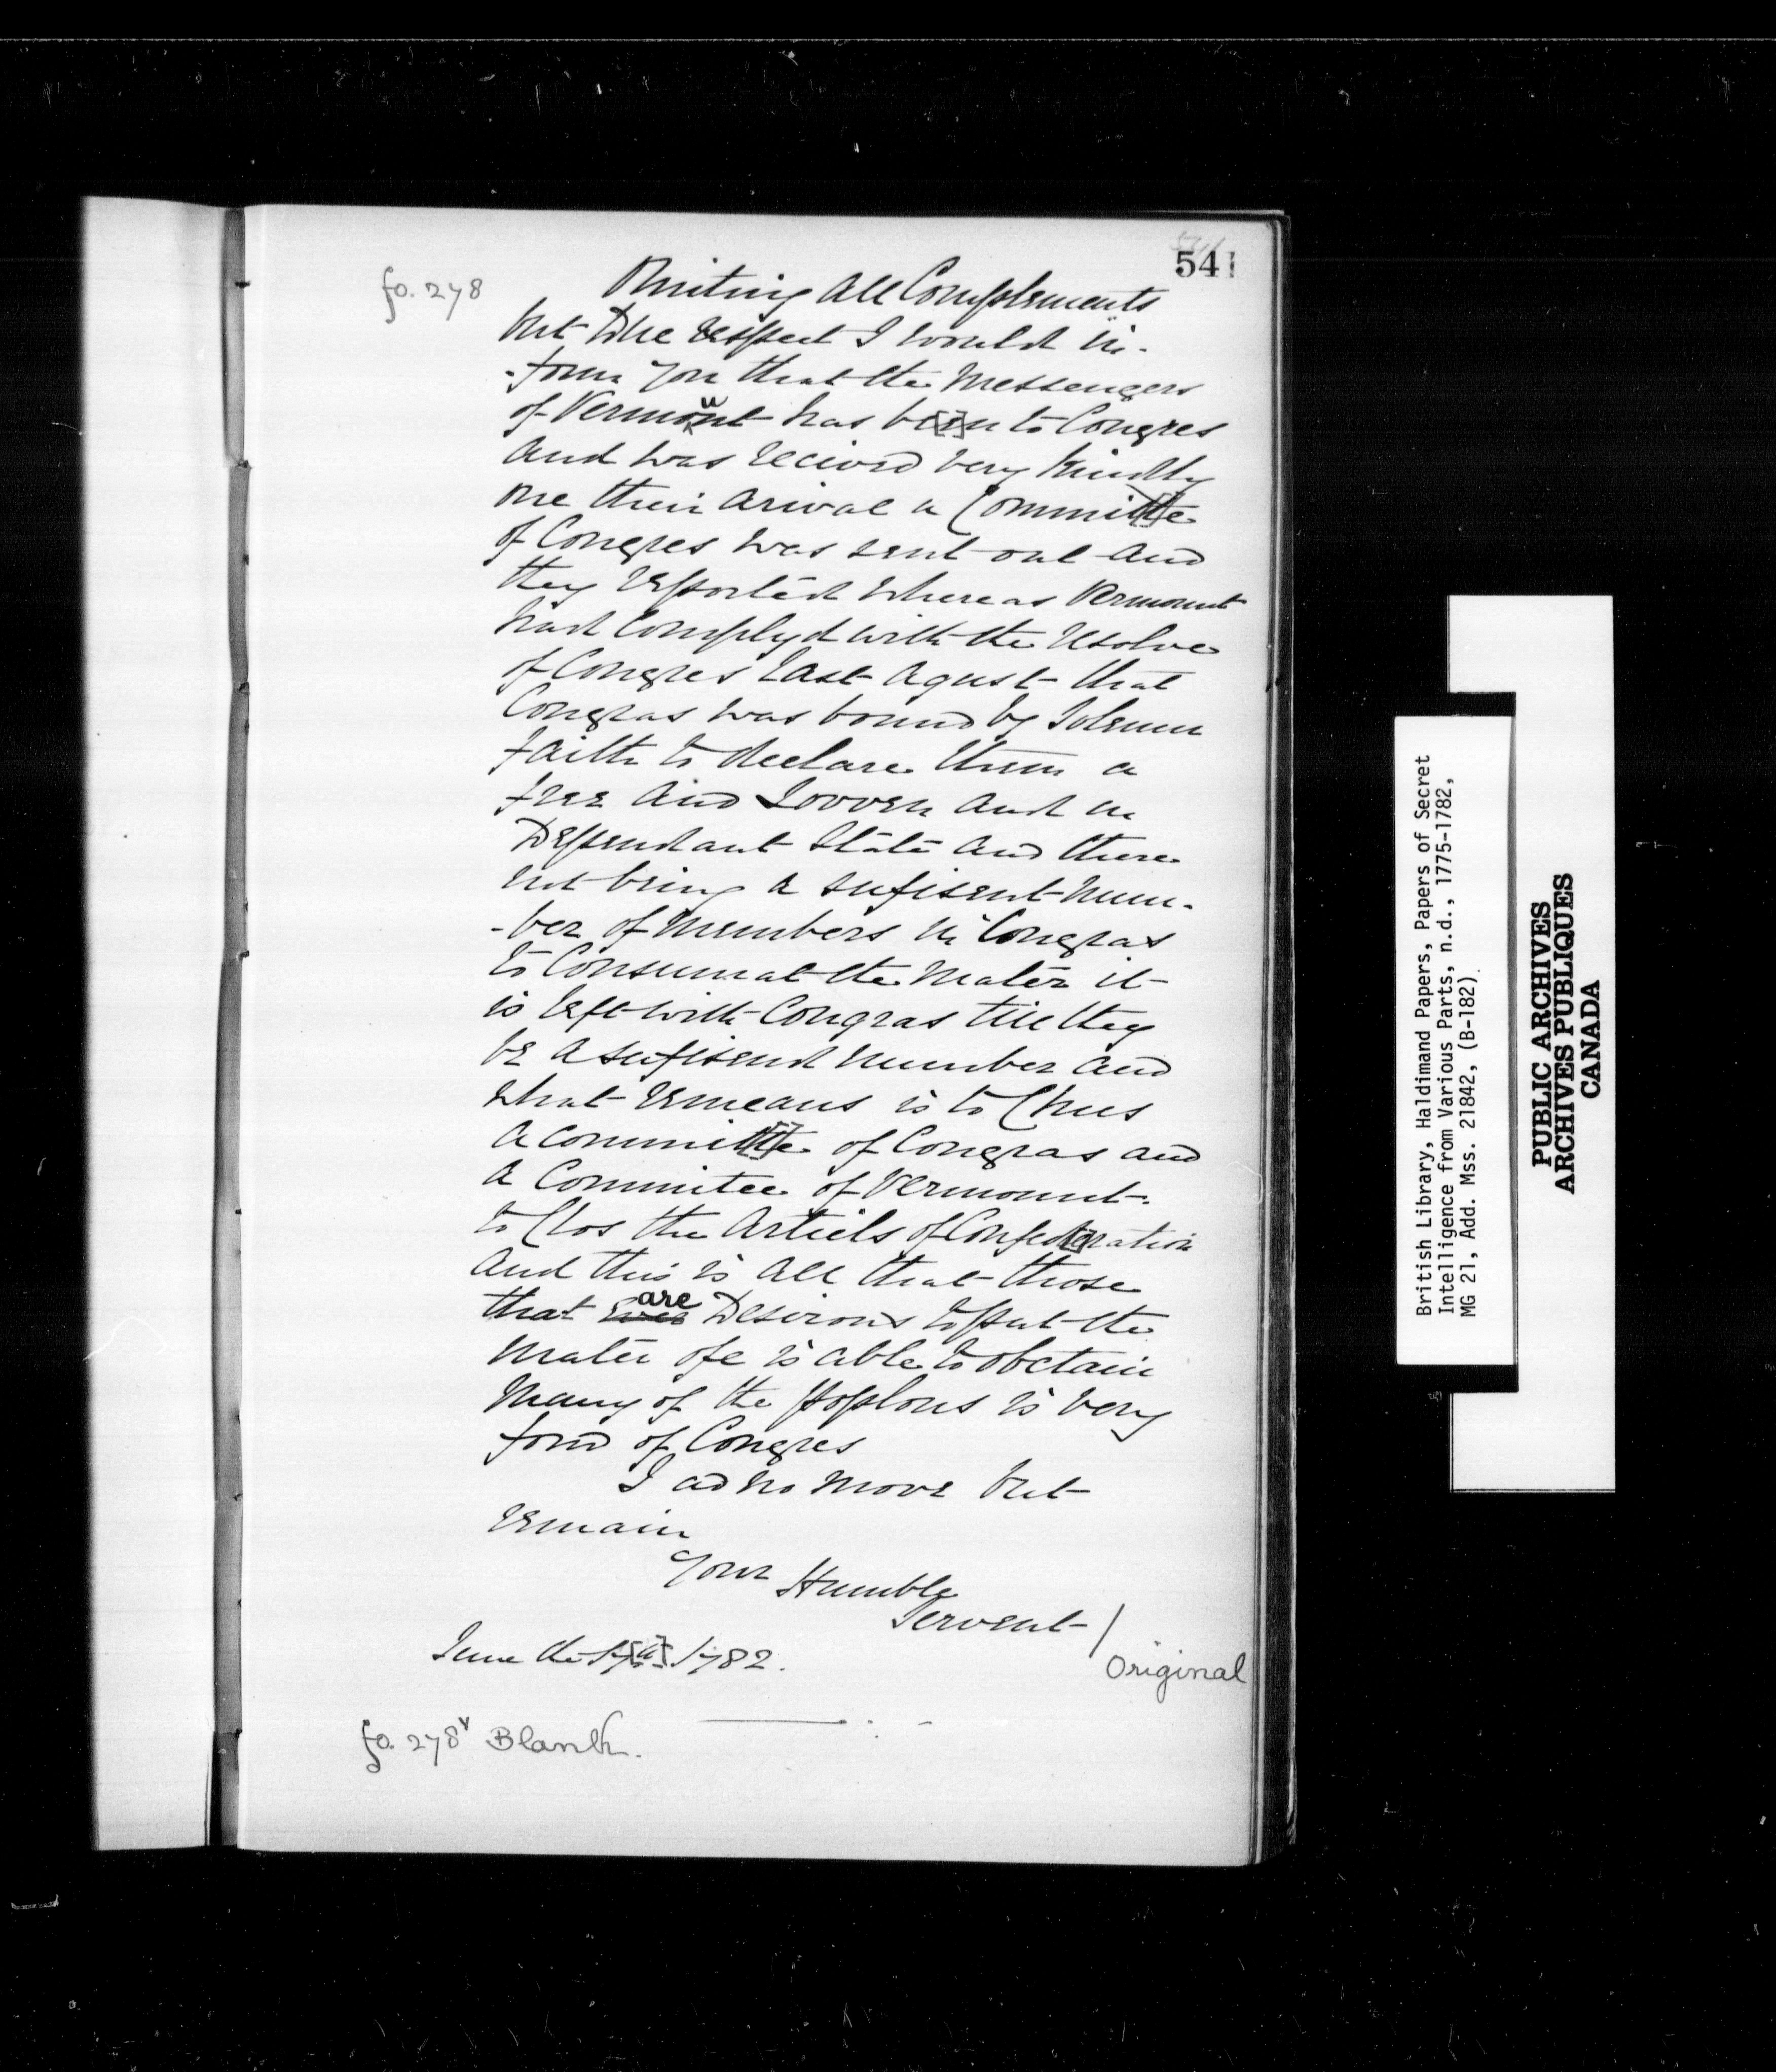 541
fo. 278
Omiting All Complements
but Due respect I would in-
-form you that the Messengers
of Vermount has been to Congres
and was recieved very kindly
one their arival a Committe
of Congres was sent out and
they reported whereas Vermount
had Complyd with the resolve
of Congres Last Agust that
Congras was bound by Solemn
faith to declare them a
free and Sovven and in
Dependant State and there
not being a sufisent num-
-ber of members in Congras
to Consumat the Mater it
is left with Congras till they
be a sufisend number and
what remeans is to Chus
a committe of Congras and
a Committee of Vermount
to Clos the Articls of Confederation
and this is all that those
that are Desirous to put the
mater ofe is able to obctain
Many of the poplous is very
fond of Congres
I ad no more but
remain
Your Humble
Servent /
Original
June the 17[th] 1782.
fo. 278v Blank.
British Library, Haldimand Papers, Papers of Secret
Intelligence from Various Parts, n.d., 1775-1782,
MG 21, Add. Mss. 21842, (B-182)
PUBLIC ARCHIVES
ARCHIVES PUBLIQUES
CANADA